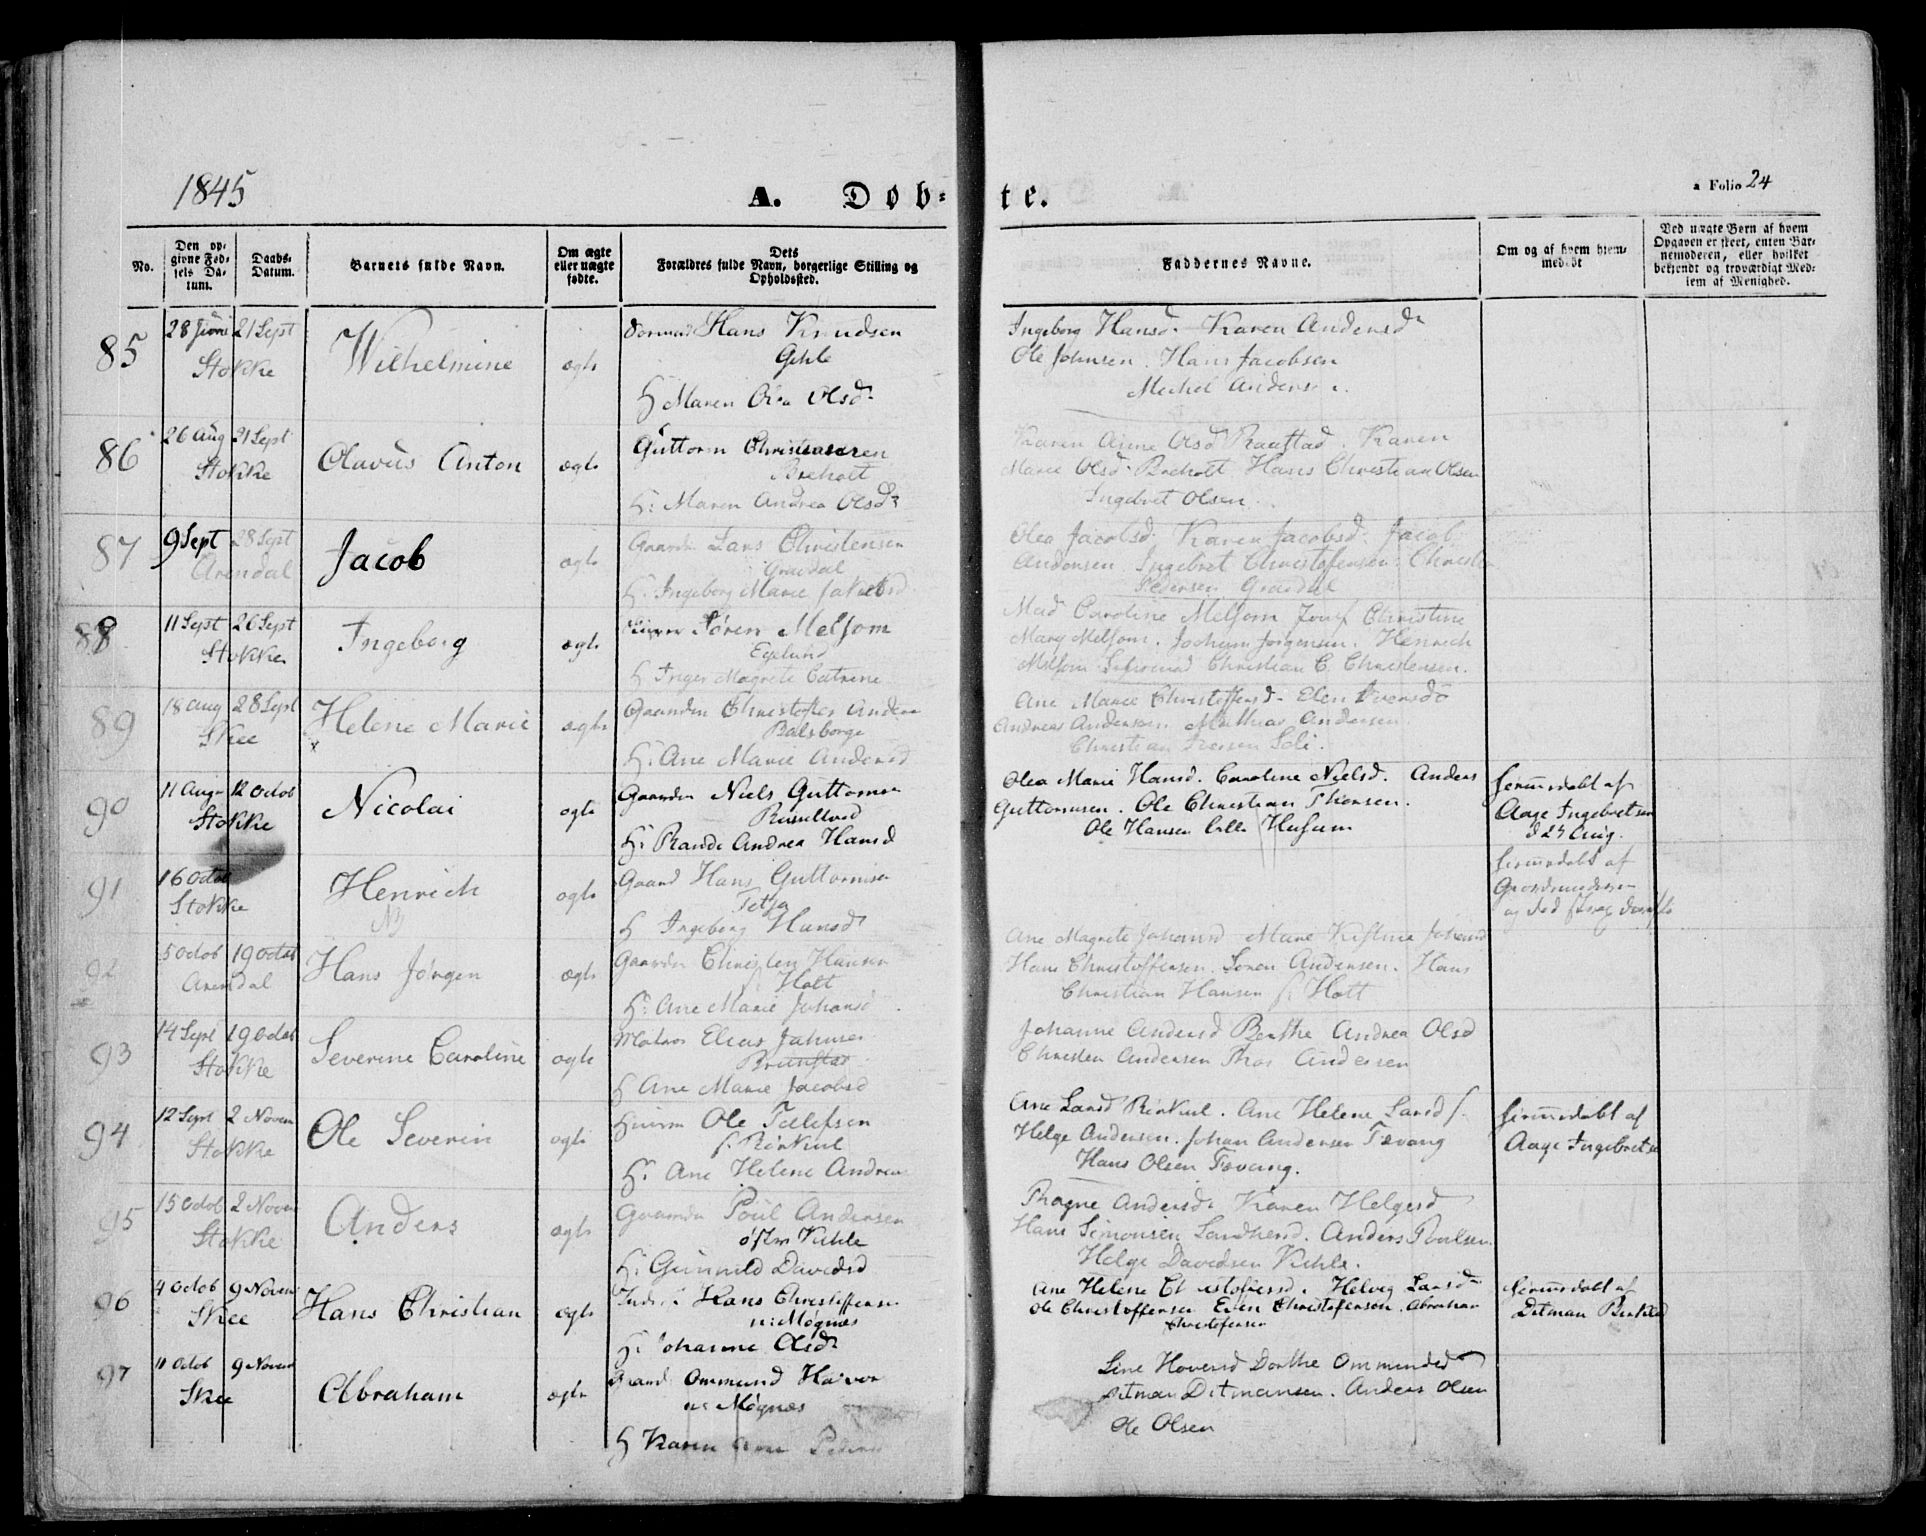 1845
A. Døb-
te.
a Folio 24
No.
Den op-
givne Fød-
sels Da-
tum.
Daabs-
Datum.
Barnets fulde Navn.
Om ægte
eller uægte
fødte.
Dets
Forældres fulde Navn, borgerlige Stilling og
Opholdssted.
Faddernes Navne.
Om og af hvem hjem-
medøbt
Ved uægte Børn af hvem
Opgaven er skeet, enten Bar-
nemoderen, eller hvilket
bekjendt og troværdigt Med-
lem af Menighed.
85
28 Juni 21 Sept
Stokke
Wilhelmine
ægte
Hans Knudsen
Gjhle
H Maren Olsd
Ingeborg Hansd. Karen Andersd
Ole Johnsen. Hans Jacobsen
Michel Anders
86
26 Aug 21 Sept
Stokke
Olavus Anton
ægte
Guttorm Christensen
Breholt
H: Maren Andrea Olsd
Karen Olsd Raastad. Karen
Marie Olsd Breholt Hans Christian Olsen
Ingebret Olsen.
87
9 Sept 28 Sept
Arendal
Jacob
ægte
Gaardm Lars Christensen
Gravdal
H. Ingeborg Marie Jakobsd
Olea Jacobsd. Karen Jacobsd. Jacob
Andersen Ingebret Christofersen
Pedersen Gravdal
88
11 Sept 26 Sept
Stokke
Ingeborg
ægte
Søren Melsom
Egelund
H. Inger Magrete Catrine
Mad Caroline Melsom Jomf Christine
Mary Melsom. Jochum Jørgensen. Henrich
Melsom Christian C. Christensen.
89
18 Aug 28 Sept
Skee
Helene Marie
x
ægte
Gaardm Christoffer Anders
Balsborge
H. Ane Marie Andersd
Ane Marie Christoffersd. Elen Iversd
Andreas Andersen. Mathias Andersen
Christian Iversen
90
11 Aug 12 Octob
Stokke
Nicolai
ægte
Gaardm Niels Guttorms
H: Rande Andrea Hansd
Olea Marie Hansd. Caroline Nielsd. Anders
Guttormsen. Ole Christian Thorsen.
Ole Hansen Lille Husum
hjemmedøbt af
Aage Ingebretsen
d 24 Aug.
91
16 Octob
Stokke
Henrich
NB
ægte
Gaard Hans Guttormsen
H Ingeborg Hansd
hjemmedøbt af
og død strax
92
5 Octob 19 Octob
Arendal
Hans Jørgen
ægte
Gaardm Christen Hansen
Holt
H: Ane Marie Johansd
Ane Magrete Johansd Marie Johansd
Hans Christoffersen. Søren Andersen. Hans
Christian Hansen Holt
93
14 Sept 19 Octob
Stokke
Severine Caroline
ægte
Matros Elias Johnsen
Brunstad
H Ane Marie Jacobsd
Johanne Andersd Berthe Andrea Olsd
Christen Andersen Thor Andersen
94
12 Sept 2 Novem
Stokke
Ole Severin
ægte
Ole Tellefsen
H: Ane Helene Andrea
Ane Larsd. Ane Helene Larsd
Helge Andersen. Johan Andersen Tevang
Hans Olsen Tevang.
hjemmedøbt af
Aage Ingebretsen
95
15 Octob 2 Novem
Stokke
Anders
ægte
Gaardm Poul Andersen
østre Kihle
H: Gunnild Davidsd
Andersd. Karen Helgesd
Hans Simonsen. Anders Poulsen
Helge Davidsen Kihle.
96
4 Octob 9 Novem
Skee
Hans Christian
ægte
Hans Christoffersen
n: Møgnæs
H: Johanne Olsd
Ane Helene Christofersd. Helvig Larsd
Ole Christoffersen Even Christofersen. Abraham
Christofersen
hjemmedøbt af
Ditman
97
11 Octob 9 Novem
Skee
Abraham
ægte
Gaard Ommund Haavor
n: Møgnæs
H Karen
Dorthe Ommundsd
Ditman Ditmansen. Anders Olsen
Ole Olsen